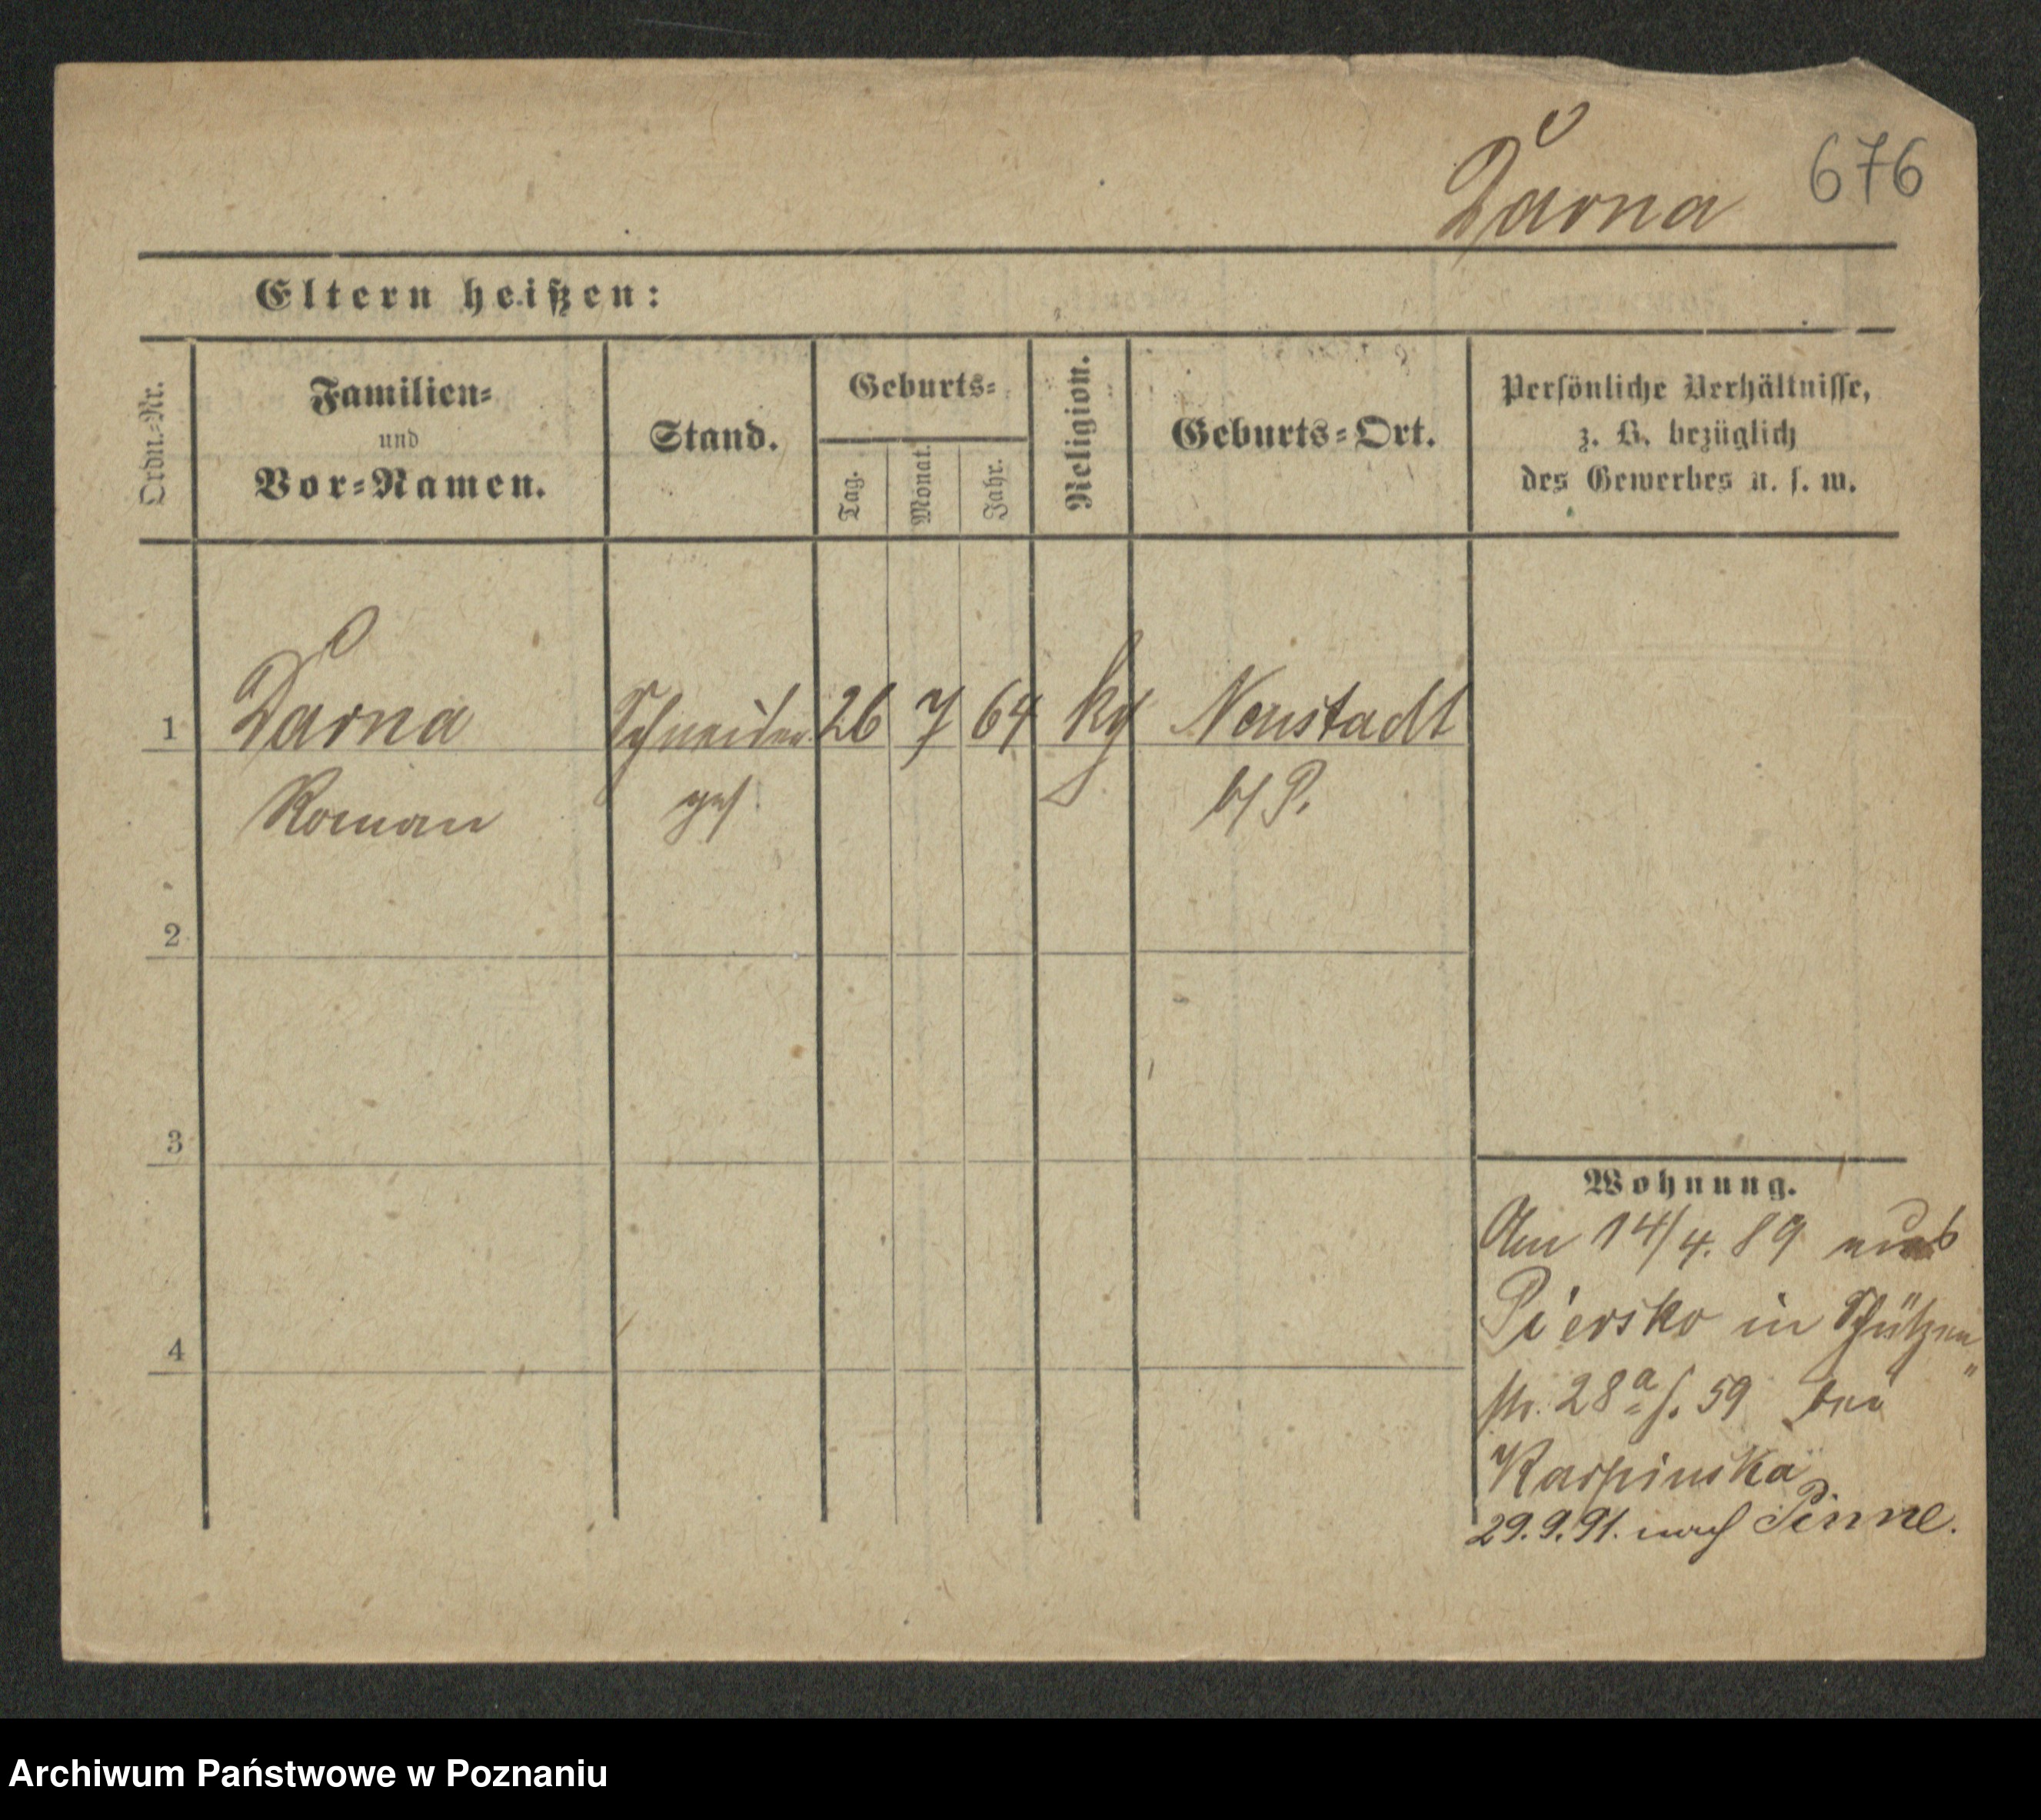 Darna 676
Eltern heißen:
Ordn.-Nr.
Familien-
und
Vor-Namen.
Stand.
Geburts-
Tag.
Monat.
Jahr.
Religion.
Geburts-Ort.
Persönliche Verhältnisse,
z. B. bezüglich
des Gewerbes u. s. w.
1 Darna Schneider 26 7 64 Neustadt
Roman ges. b/P.
2
3
4
Wohnung.
Am 14/4. 89 aus
Piersko in Schützen„
str. 28a f. 59 bei
Karpinska
29.9.91. nach Pinne.
Archiwum Państwowe w Poznaniu